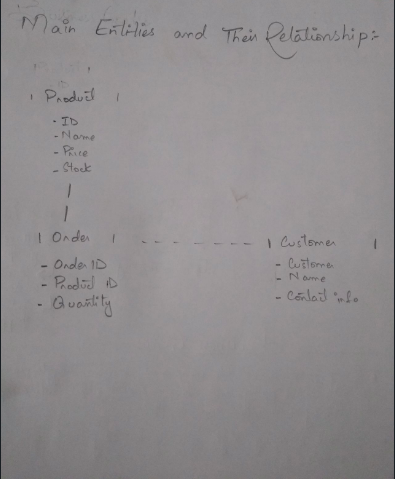 Main Entities and Their Relationship:-
| Product |
- ID
- Name
- Price
- Stock
|
|
| Order | - - - - - - - - | Customer |
- Order ID
- Product ID
- Quantity
- Customer
- Name
- Contact info